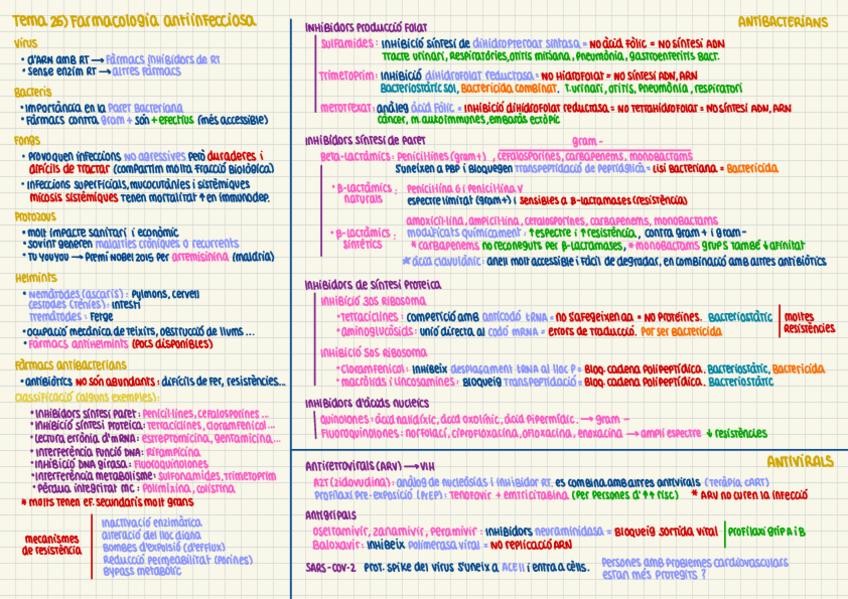 Tema 26) Farmacologia antiinfecciosa
Virus
• d'ARN amb RT → Fàrmacs inhibidors de RT
• Sense enzim RT → altres fàrmacs
Bacteris
• importància en la Paret Bacteriana
• Fàrmacs contra gram + són + efectius (més accessible)
Fongs
• Provoquen infeccions no agressives però duraderes i
difícils de tractar (compartim molta fracció biològica)
• infeccions superficials, mucocutànies i sistèmiques
micosis sistèmiques tenen mortalitat ↑ en immunodep.
Protozous
• molt impacte sanitari i econòmic
• sovint generen malalties cròniques o recurrents
• Tu Youyou → Premi Nobel 2015 per artemisinina (malària)
Helmints
• Nemàtodes (ascaris): Pulmons, cervell
cestodes (tènies): intestí
Trematodes: Fetge
• ocupació mecànica de teixits, obstrucció de llums...
• Fàrmacs antihelmints (Pocs disponibles)
Fàrmacs antibacterians
• antibiòtics no són abundants: difícils de fer, resistències...
Classificació (alguns exemples):
• inhibidors síntesi paret: Penicil·lines, cefalosporines...
• inhibició síntesi proteica: Tetraciclines, cloramfenicol...
• Lectura errònia d'mRNA: estreptomicina, gentamicina...
• interferència funció DNA: Rifampicina
• inhibició DNA girasa: Fluoroquinolones
• interferència metabolisme: sulfonamides, trimetoprim
• Pèrdua integritat MC: Polimixina, colistina
* molts tenen ef. secundaris molt grans
mecanismes
de resistència
inactivació enzimàtica
alteració del lloc diana
Bombes d'expulsió (d'efflux)
Reducció permeabilitat (porines)
Bypass metabòlic
ANTIBACTERIANS
inhibidors producció folat
Sulfamides: inhibició síntesi de dihidropteroat sintasa = no àcid fòlic = no síntesi ADN
Tracte urinari, respiratòries, otitis mitjana, pneumònia, gastroenteritis bact.
Trimetoprim: inhibició dihidrofolat reductasa = no hidrofolat = no síntesi ADN, ARN
Bacteriostàtic sol, Bactericida combinat. T. urinari, otitis, pneumònia, respiratori
metotrexat: anàleg àcid fòlic = inhibició dihidrofolat reductasa = no tetrahidrofolat = no síntesi ADN, ARN
càncer, m. autoimmunes, embaràs ectòpic
inhibidors síntesi de paret
gram -
Beta-lactàmics: Penicil·lines (gram+), cefalosporines, carbapenems, monobactams
S'uneixen a PBP i bloquegen transpeptidació de peptidglià = Lisi bacteriana = Bactericida
• β-lactàmics naturals: Penicil·lina G i Penicil·lina V
espectre limitat (gram+) i sensibles a β-lactamases (resistència)
• β-lactàmics sintètics: amoxicil·lina, ampicil·lina, cefalosporines, carbapenems, monobactams
modificats químicament: ↑ espectre i ↑ resistència, contra gram + i gram -
* carbapenems no reconeguts per β-lactamases, * monobactams grup S també ↓ afinitat
* àcid clavulònic: anell molt accessible i fàcil de degradar, en combinació amb altres antibiòtics
inhibidors de síntesi proteica
inhibició 30S ribosoma
• Tetraciclines: competició amb anticodó tRNA = no s'afegeixen aa = no proteïnes. Bacteriostàtic
• aminoglucòsids: unió directa al codó mRNA = errors de traducció. Pot ser bactericida
moltes
resistències
inhibició 50S ribosoma
• cloramfenicol: inhibeix desplaçament tRNA al lloc P = Bloq. cadena polipeptídica. Bacteriostàtic, Bactericida
• macròlids i lincosamines: Bloqueig transpeptidació = Bloq. cadena polipeptídica. Bacteriostàtic
inhibidors d'àcids nucleics
quinolones: àcid nalidíxic, àcid oxolínic, àcid pipemídic. → gram -
Fluoroquinolones: norfloxací, ciprofloxacina, ofloxacina, enoxacina → ampli espectre ↓ resistències
ANTIVIRALS
Antiretrovirals (ARV) → VIH
AZT (zidovudina): anàleg de nucleòsids i inhibidor RT. es combina amb altres antivirals (Teràpia cART)
Profilaxi Pre-Exposició (PrEP): Tenofovir + emtricitabina (Per persones d'↑↑ risc) * ARV no curen la infecció
Antigripals
oseltamivir, zanamivir, peramivir: inhibidors neuraminidasa = Bloqueig sortida viral
Profilaxi grip A i B
Baloxavir: inhibeix polimerasa viral = no replicació ARN
SARS-COV-2 Prot. spike del virus s'uneix a ACE II i entra a cèls.
Persones amb problemes cardiovasculars
estan més protegits?